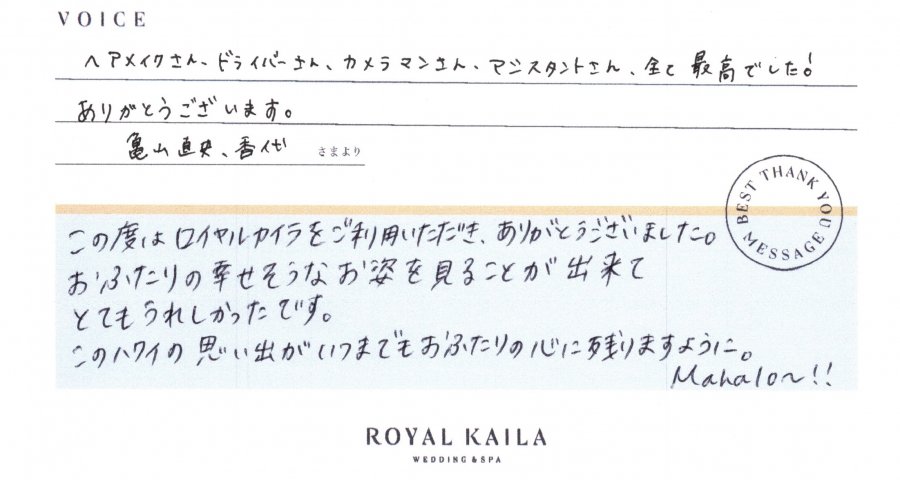 VOICE
ヘアメイクさん、ドライバーさん、カメラマンさん、アシスタントさん、全て最高でした!
ありがとうございます。
亀山直央、香代 さまより
BEST THANK YOU MESSAGE
この度はロイヤルカイラをご利用いただき、ありがとうございました。
おふたりの幸せそうなお姿を見ることが出来て
とてもうれしかったです。
このハワイの思い出がいつまでもおふたりの心に残りますように。
Mahalo~!!
ROYAL KAILA
WEDDING & SPA